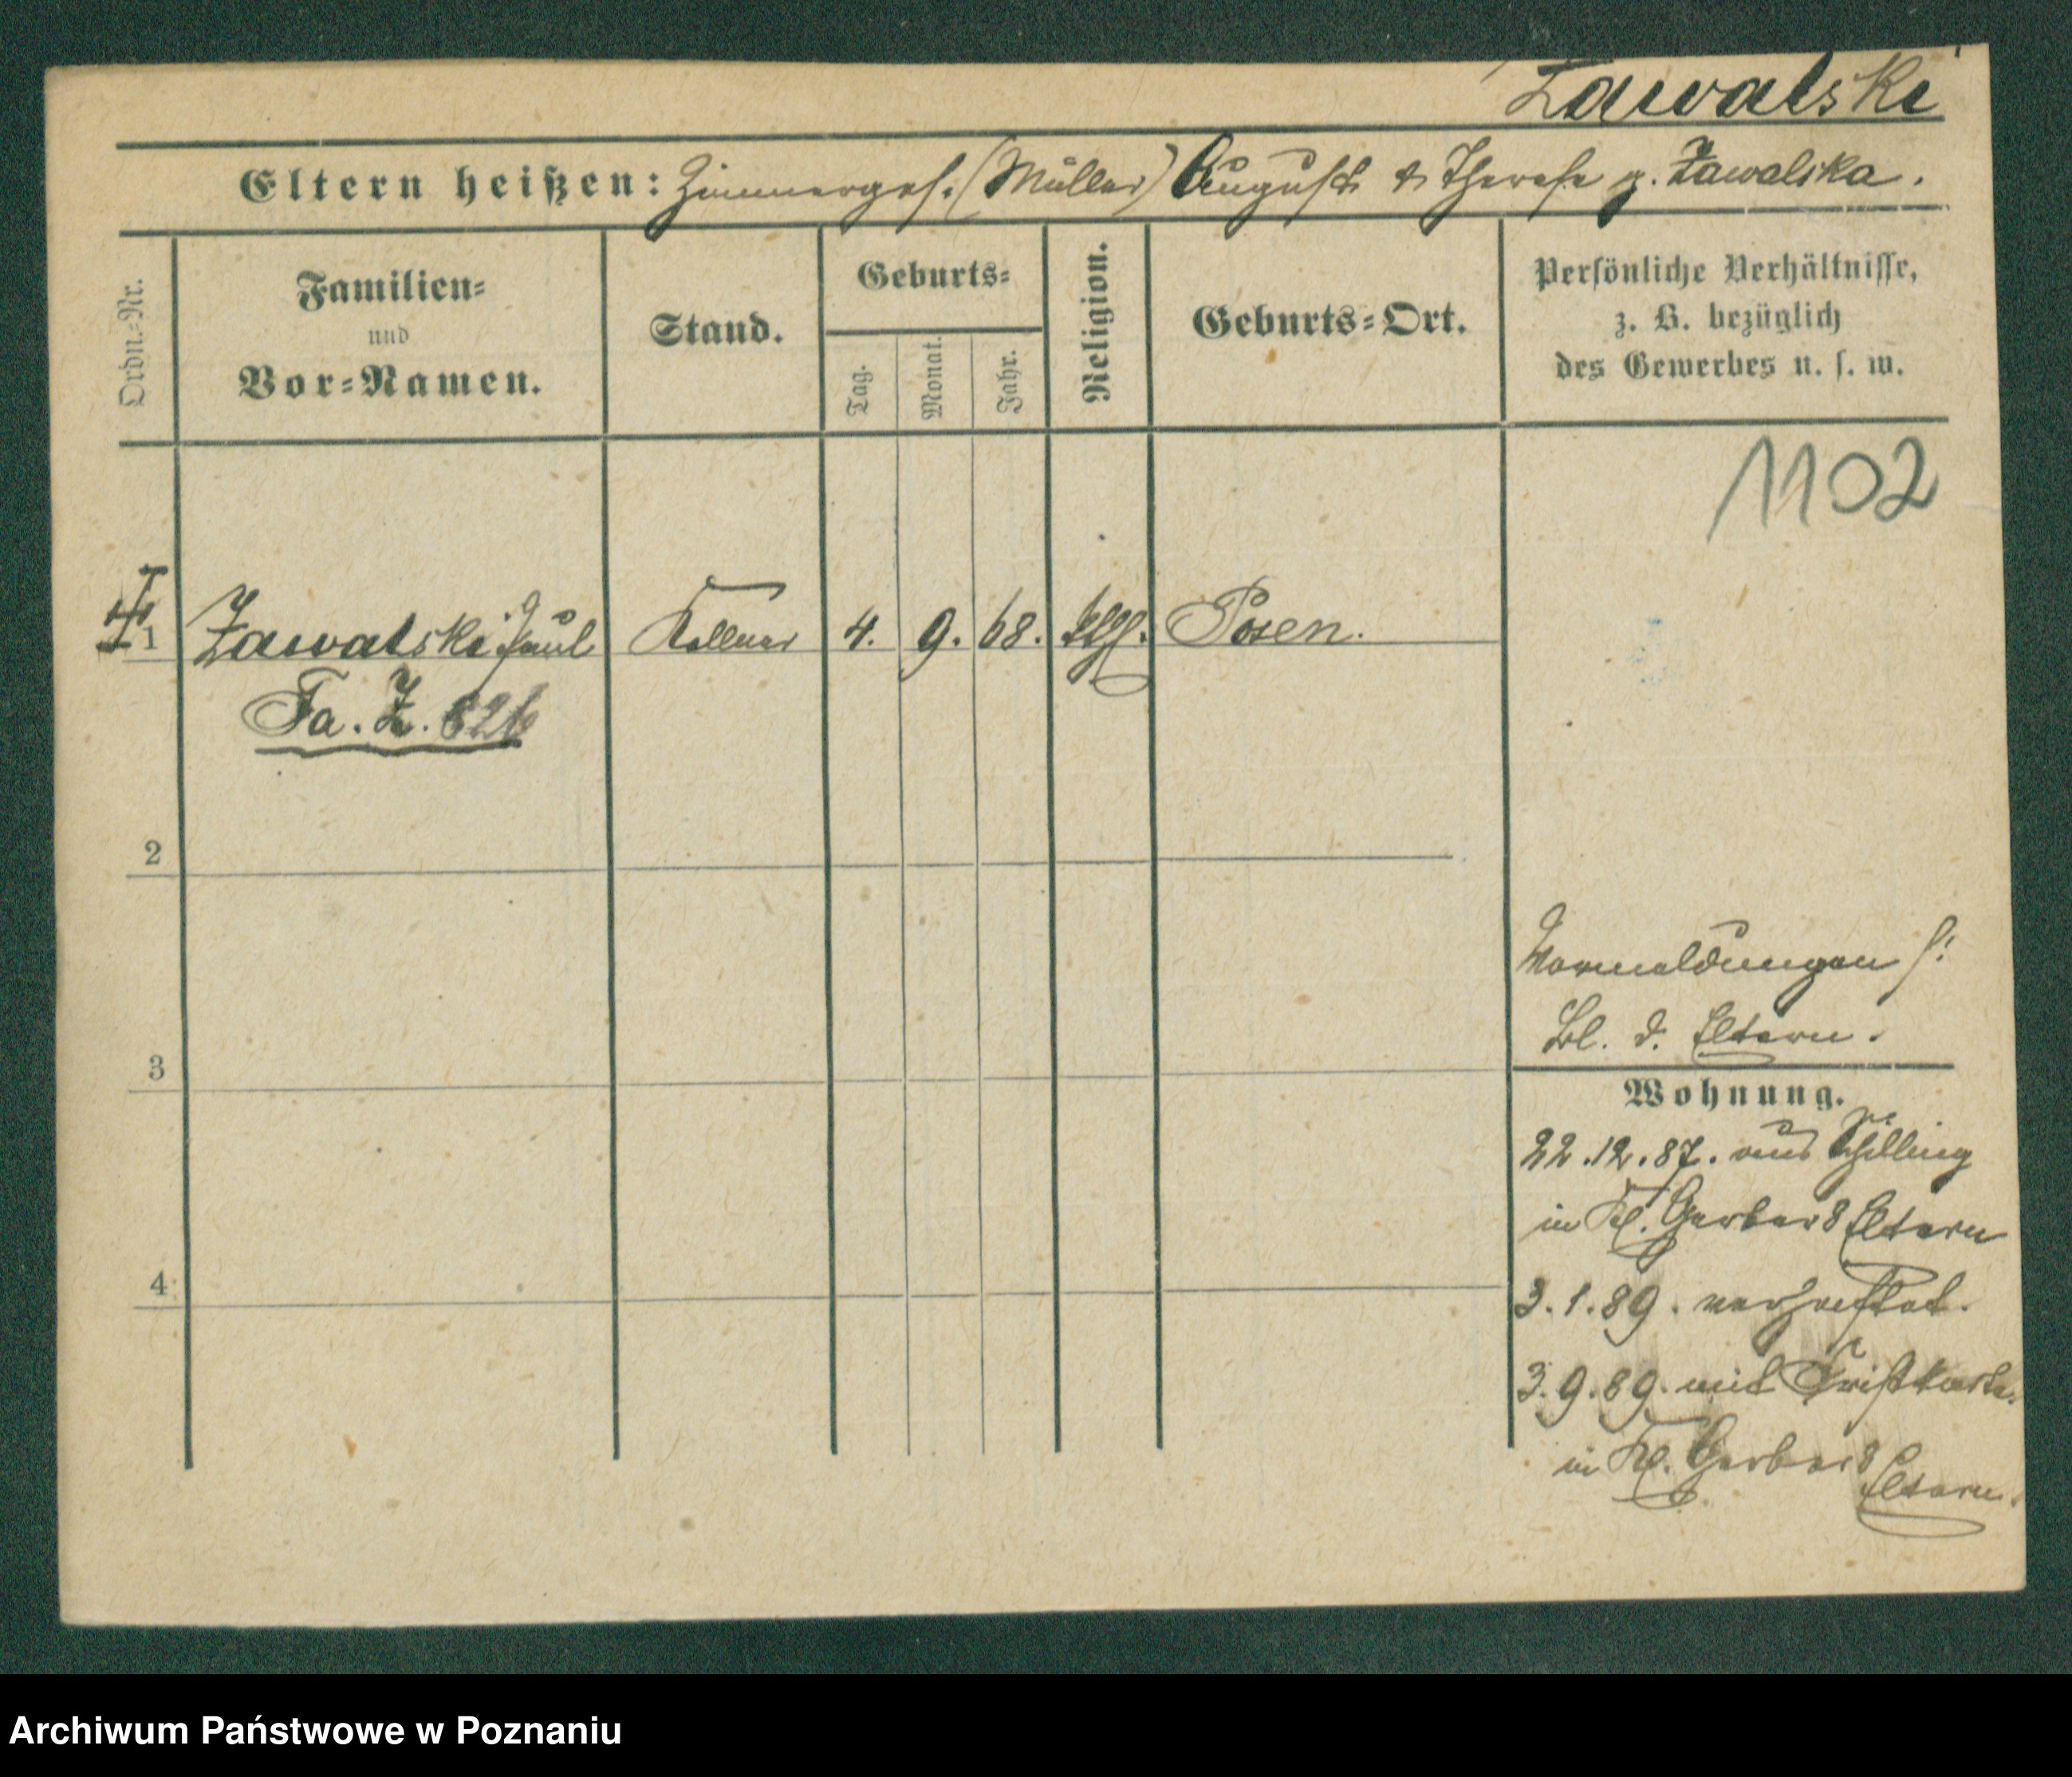 Zawalski
Eltern heißen: Zimmerges. (Müller) August & Therese g. Zawalska.
Ordn.-Nr.
Familien-
und
Vor-Namen.
Stand.
Geburts-
Tag.
Monat.
Jahr.
Religion.
Geburts-Ort.
Persönliche Verhältnisse,
z. B. bezüglich
des Gewerbes u. s. w.
1102
1 Zawalski Paul Kellner 4. 9. 68. kth. Posen.
Fa. Z.
2
3
4
Vormeldungen s:
Bl. d. Eltern.
Wohnung.
22.12.87. aus Schilling
in Kl. Gerber 8 Eltern
3.1.89. verhaftet.
3.9.89. mit
in Kl. Gerber 8
Eltern.
Archiwum Państwowe w Poznaniu